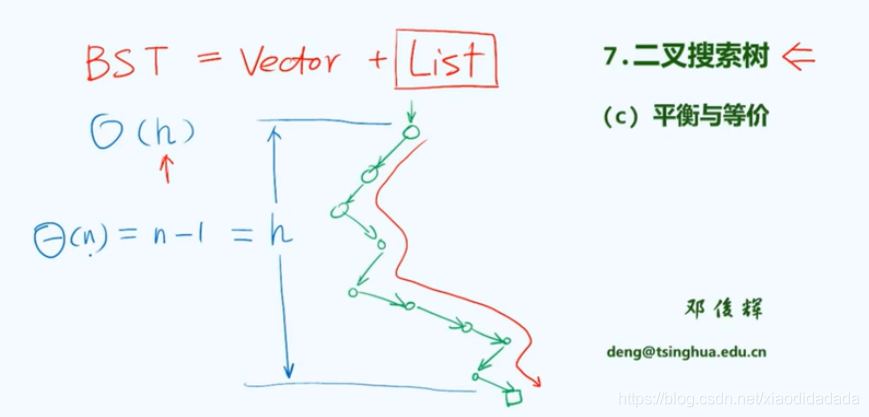 BST = Vector + List
7.二叉搜索树
(c) 平衡与等价
O(h)
Θ(n) = n-1 = h
邓俊辉
deng@tsinghua.edu.cn
https://blog.csdn.net/xiaodidadada